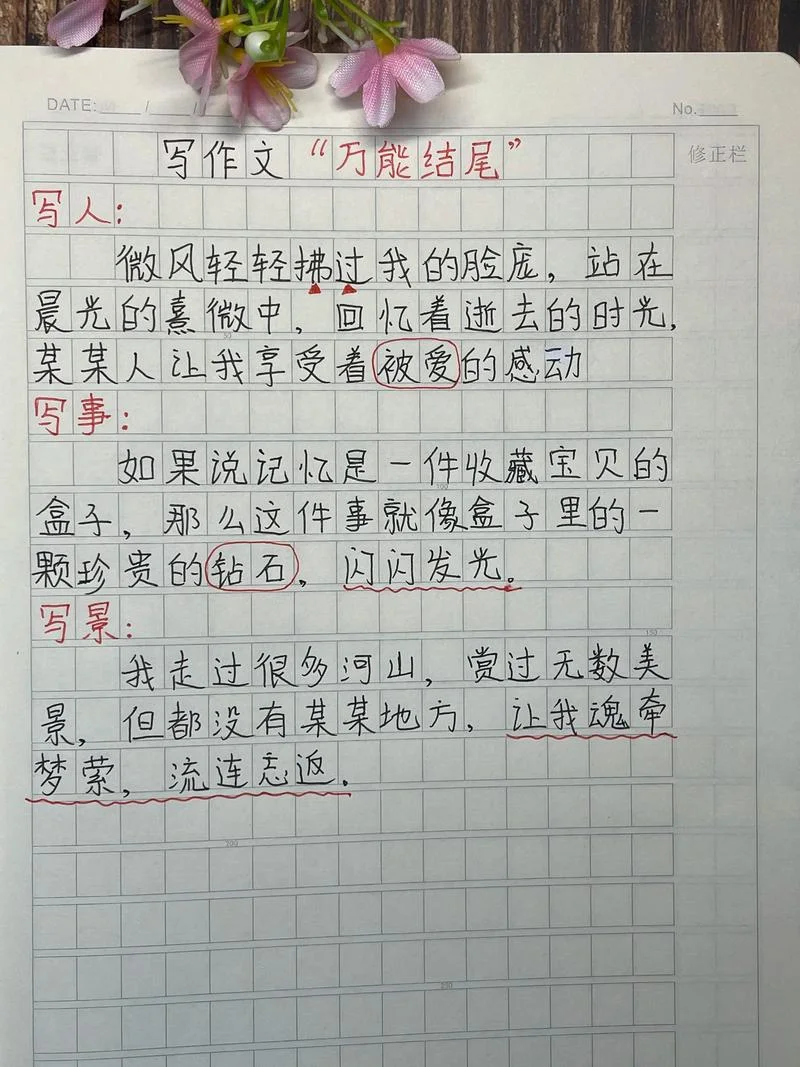 DATE: / /
No.
修正栏
写作文“万能结尾”
写人:
微风轻轻拂过我的脸庞，站在
晨光的熹微中，回忆着逝去的时光，
某某人让我享受着被爱的感动
写事:
如果说记忆是一件收藏宝贝的
盒子，那么这件事就像盒子里的一
颗珍贵的钻石，闪闪发光。
写景:
我走过很多河山，赏过无数美
景，但都没有某某地方，让我魂牵
梦萦，流连忘返。
100
150
200